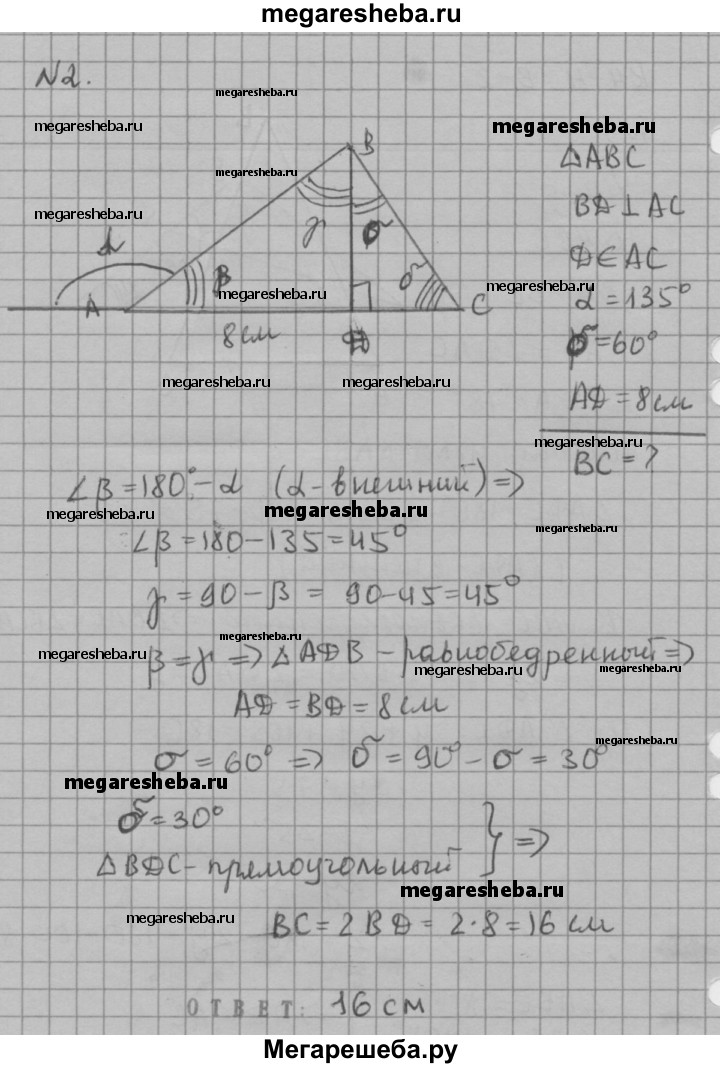 megaresheba.ru
N2.
megaresheba.ru
megaresheba.ru
megaresheba.ru
megaresheba.ru
megaresheba.ru
B
α
γ
σ
β
δ
A
C
8 см
D
megaresheba.ru
megaresheba.ru
megaresheba.ru
megaresheba.ru
△ABC
BD ⊥ AC
D ∈ AC
α = 135°
σ = 60°
AD = 8 см
megaresheba.ru
BC = ?
∠β = 180° - α (α - внешний) =>
megaresheba.ru
megaresheba.ru
megaresheba.ru
∠β = 180 - 135 = 45°
γ = 90 - β = 90 - 45 = 45°
megaresheba.ru
megaresheba.ru
β = γ => △ADB - равнобедренный =>
megaresheba.ru
megaresheba.ru
AD = BD = 8 см
megaresheba.ru
σ = 60° => δ = 90° - σ = 30°
megaresheba.ru
δ = 30°
△BDC - прямоугольный } =>
megaresheba.ru
megaresheba.ru
BC = 2 BD = 2·8 = 16 см
ОТВЕТ: 16 см
Мегарешеба.ру